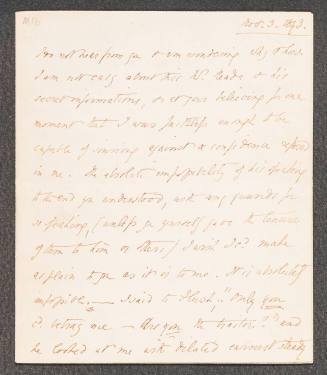 Nov. 3. 1893.
I do not hear from you & am wondering why & how.
I am not easy about this W. & his
secret informations, or at your believing for one
moment that I was faithless enough to be
capable of sinning against a confidence reposed
in me. The absolute impossibility of his speaking
to the end you understood, with any grounds for
so speaking, (unless you yourself gave the
of them to him or others) I wish I cd. make
as plain to you as it is to me. It is absolutely
impossible. — I said to "Only you
cd. betray me — Are you the traitor?" and
he looked at me with dilated earnest steady